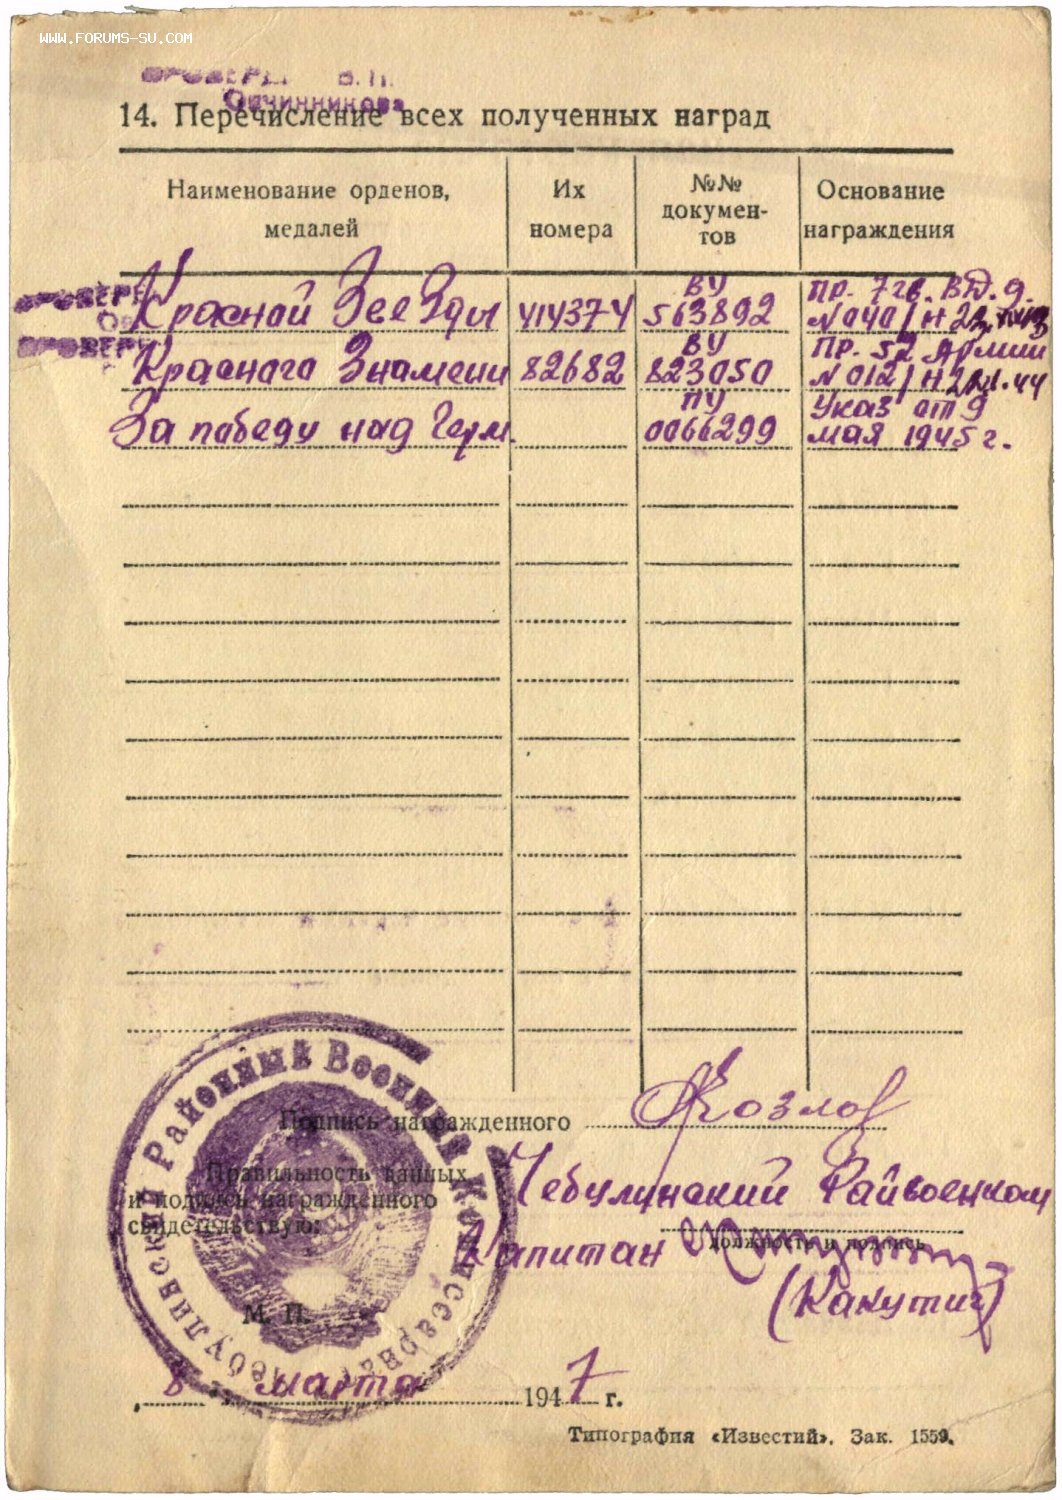 WWW.FORUMS-SU.COM
В.П.
Овчинникова
14. Перечисление всех полученных наград
Наименование орденов, медалей
Их номера
№№ докумен-тов
Основание награждения
Красной Звезды 414374 ВУ 563892 Пр. 7 гв. ВД.д. N 040/н 22.
Красного Знамени 82682 ВУ 823050 Пр. 52 Армии N 012/н 44
За победу над Герм. ПУ 0066299 Указ от 9 мая 1945 г.
Подпись награжденного Козлов
Правильность данных
и подпись награжденного
свидетельствую:
Чебулинский Райвоенком
Капитан
должность и подпись
(Какутич)
М. П.
Чебулинский Районный Военный Комиссариат
8 марта 1947 г.
Типография «Известий». Зак. 1559.